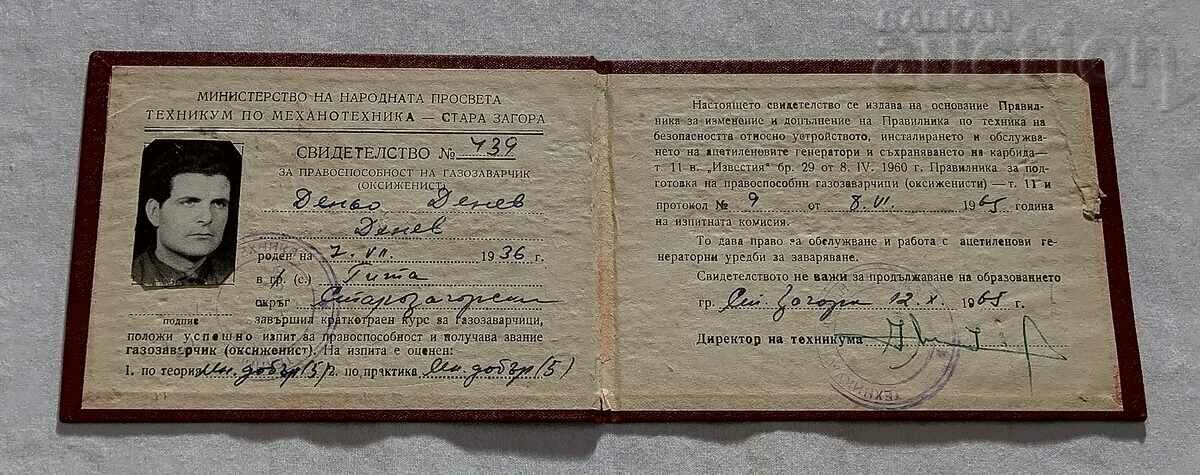 МИНИСТЕРСТВО НА НАРОДНАТА ПРОСВЕТА
ТЕХНИКУМ ПО МЕХАНОТЕХНИКА — СТАРА ЗАГОРА
СВИДЕТЕЛСТВО № 439
ЗА ПРАВОСПОСОБНОСТ НА ГАЗОЗАВАРЧИК
(ОКСИЖЕНИСТ)
Деньо Денев
Денев
роден на 7. VII. 1936 г.
в гр. (с.) Гита
окръг Старозагорски
подпис
завършил краткотраен курс за газозаварчици,
положи успешно изпит за правоспособност и получава звание
газозаварчик (оксиженист). На изпита е оценен:
1. по теория Мн. добър (5) 2. по практика Мн. добър (5)
Настоящето свидетелство се издава на основание Правил-
ника за изменение и допълнение на Правилника по техника на
безопасността относно устройството, инсталирането и обслужва-
нето на ацетиленовите генератори и съхраняването на карбида—
т. 11 в. „Известия" бр. 29 от 8. IV. 1960 г. Правилника за под-
готовка на правоспособни газозаварчици (оксиженисти) — т. 11 и
протокол № 9 от 8. VI. 1965 година
на изпитната комисия.
То дава право за обслужване и работа с ацетиленови ге-
нераторни уредби за заваряване.
Свидетелството не важи за продължаване на образованието
гр. Ст. Загора 12. X. 1965 г.
Директор на техникума
auction